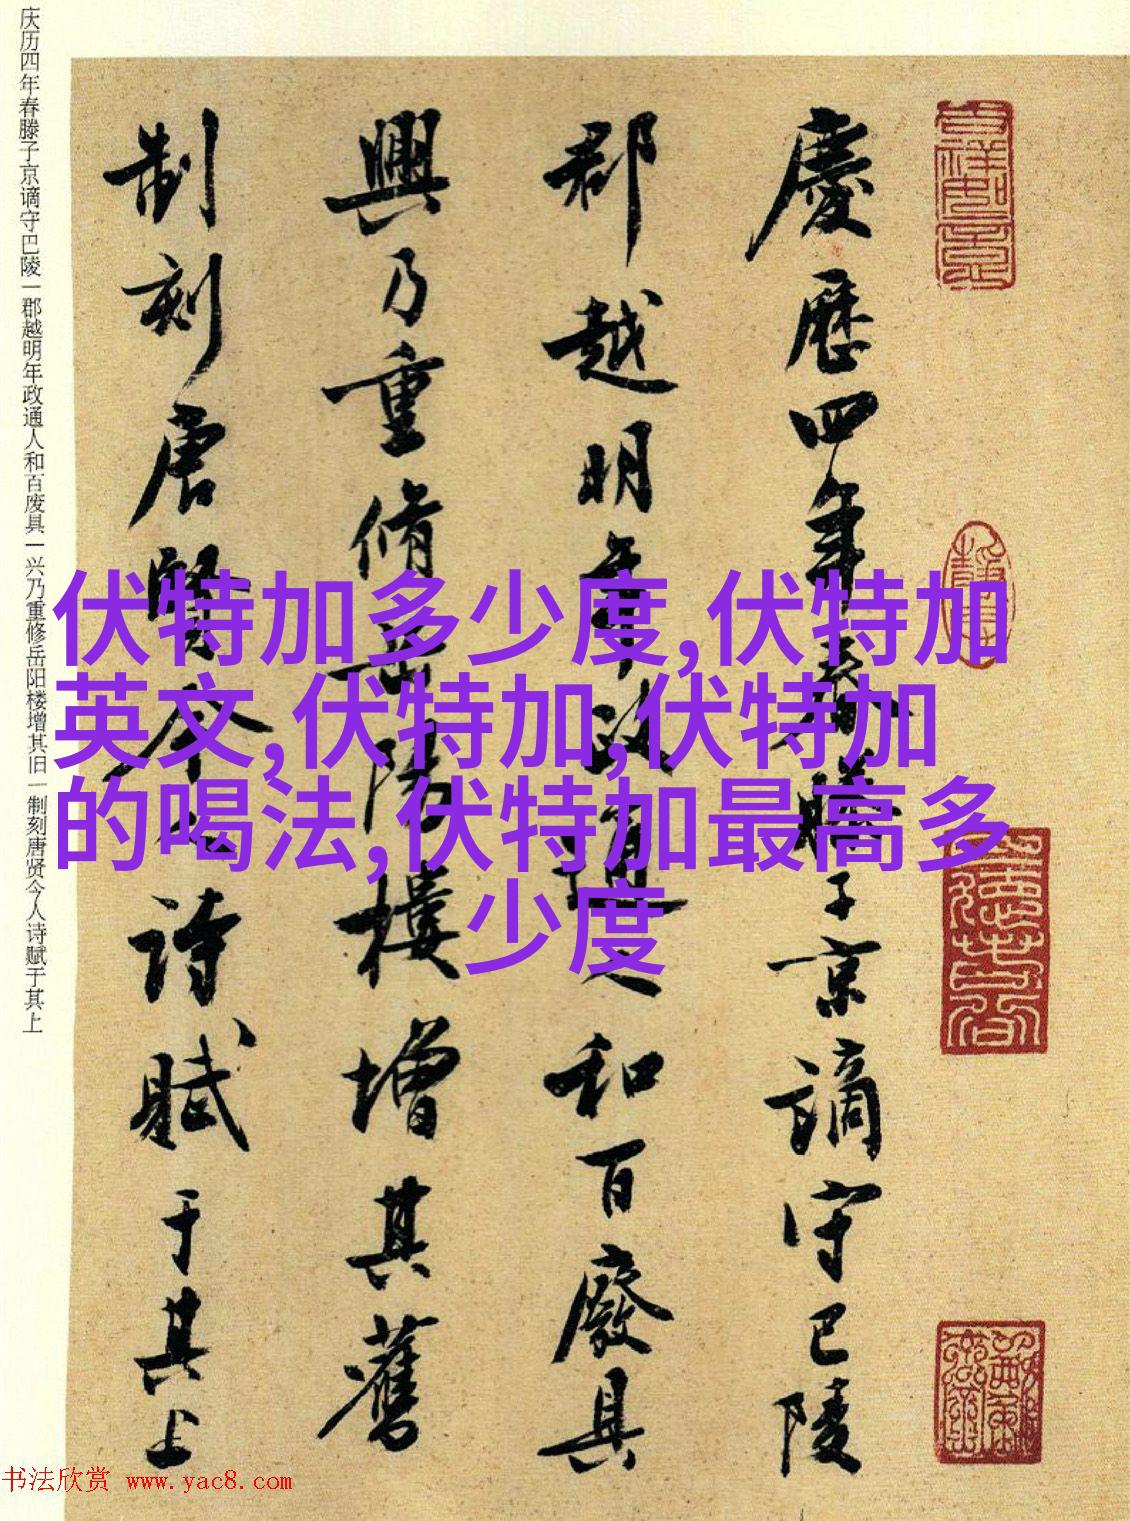 庆历四年春滕子京谪守巴陵一郡越明年政通人和百废具一兴乃重修岳阳楼增其旧一制刻唐贤今人诗赋于其上
慶歷四年春滕子京謫守巴陵
郡越明年政通人和百廢具
興乃重脩岳陽樓增其舊
制刻唐賢今人詩賦于其上
伏特加多少度,伏特加
英文,伏特加,伏特加
的喝法,伏特加最高多
少度
书法欣赏 www.yac8.com